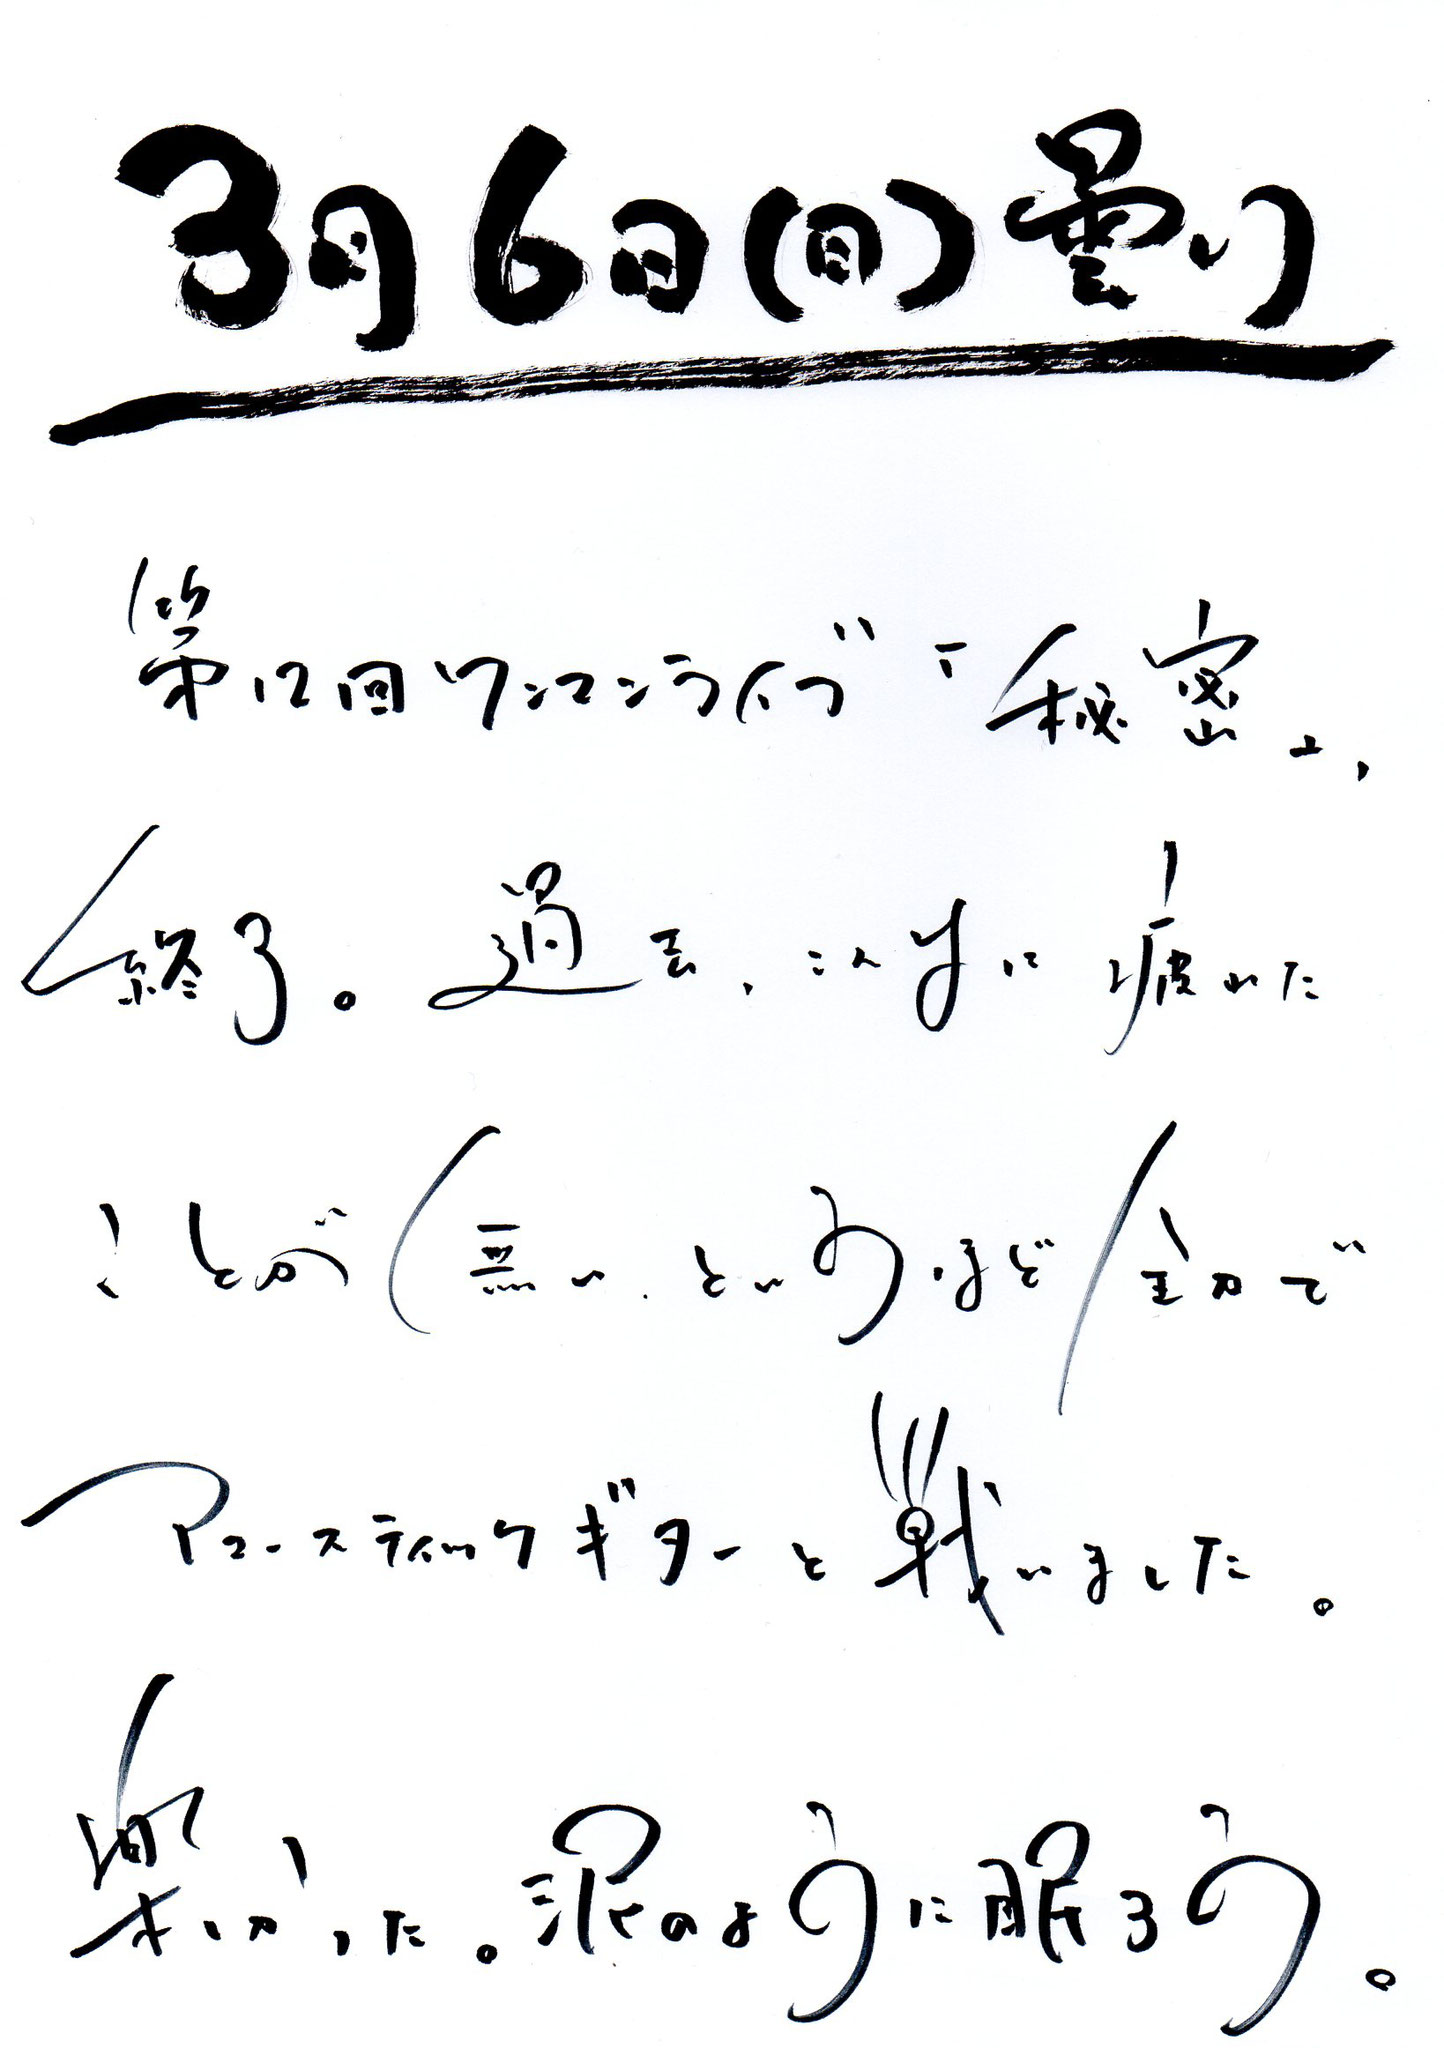 3月6日(日)曇り
第12回ワンマンライブ「秘密」、
終了。過去、こんなに疲れた
ことが無い、というほど全力で
アコースティックギターと戦いました。
楽しかった。泥のように眠ろう。